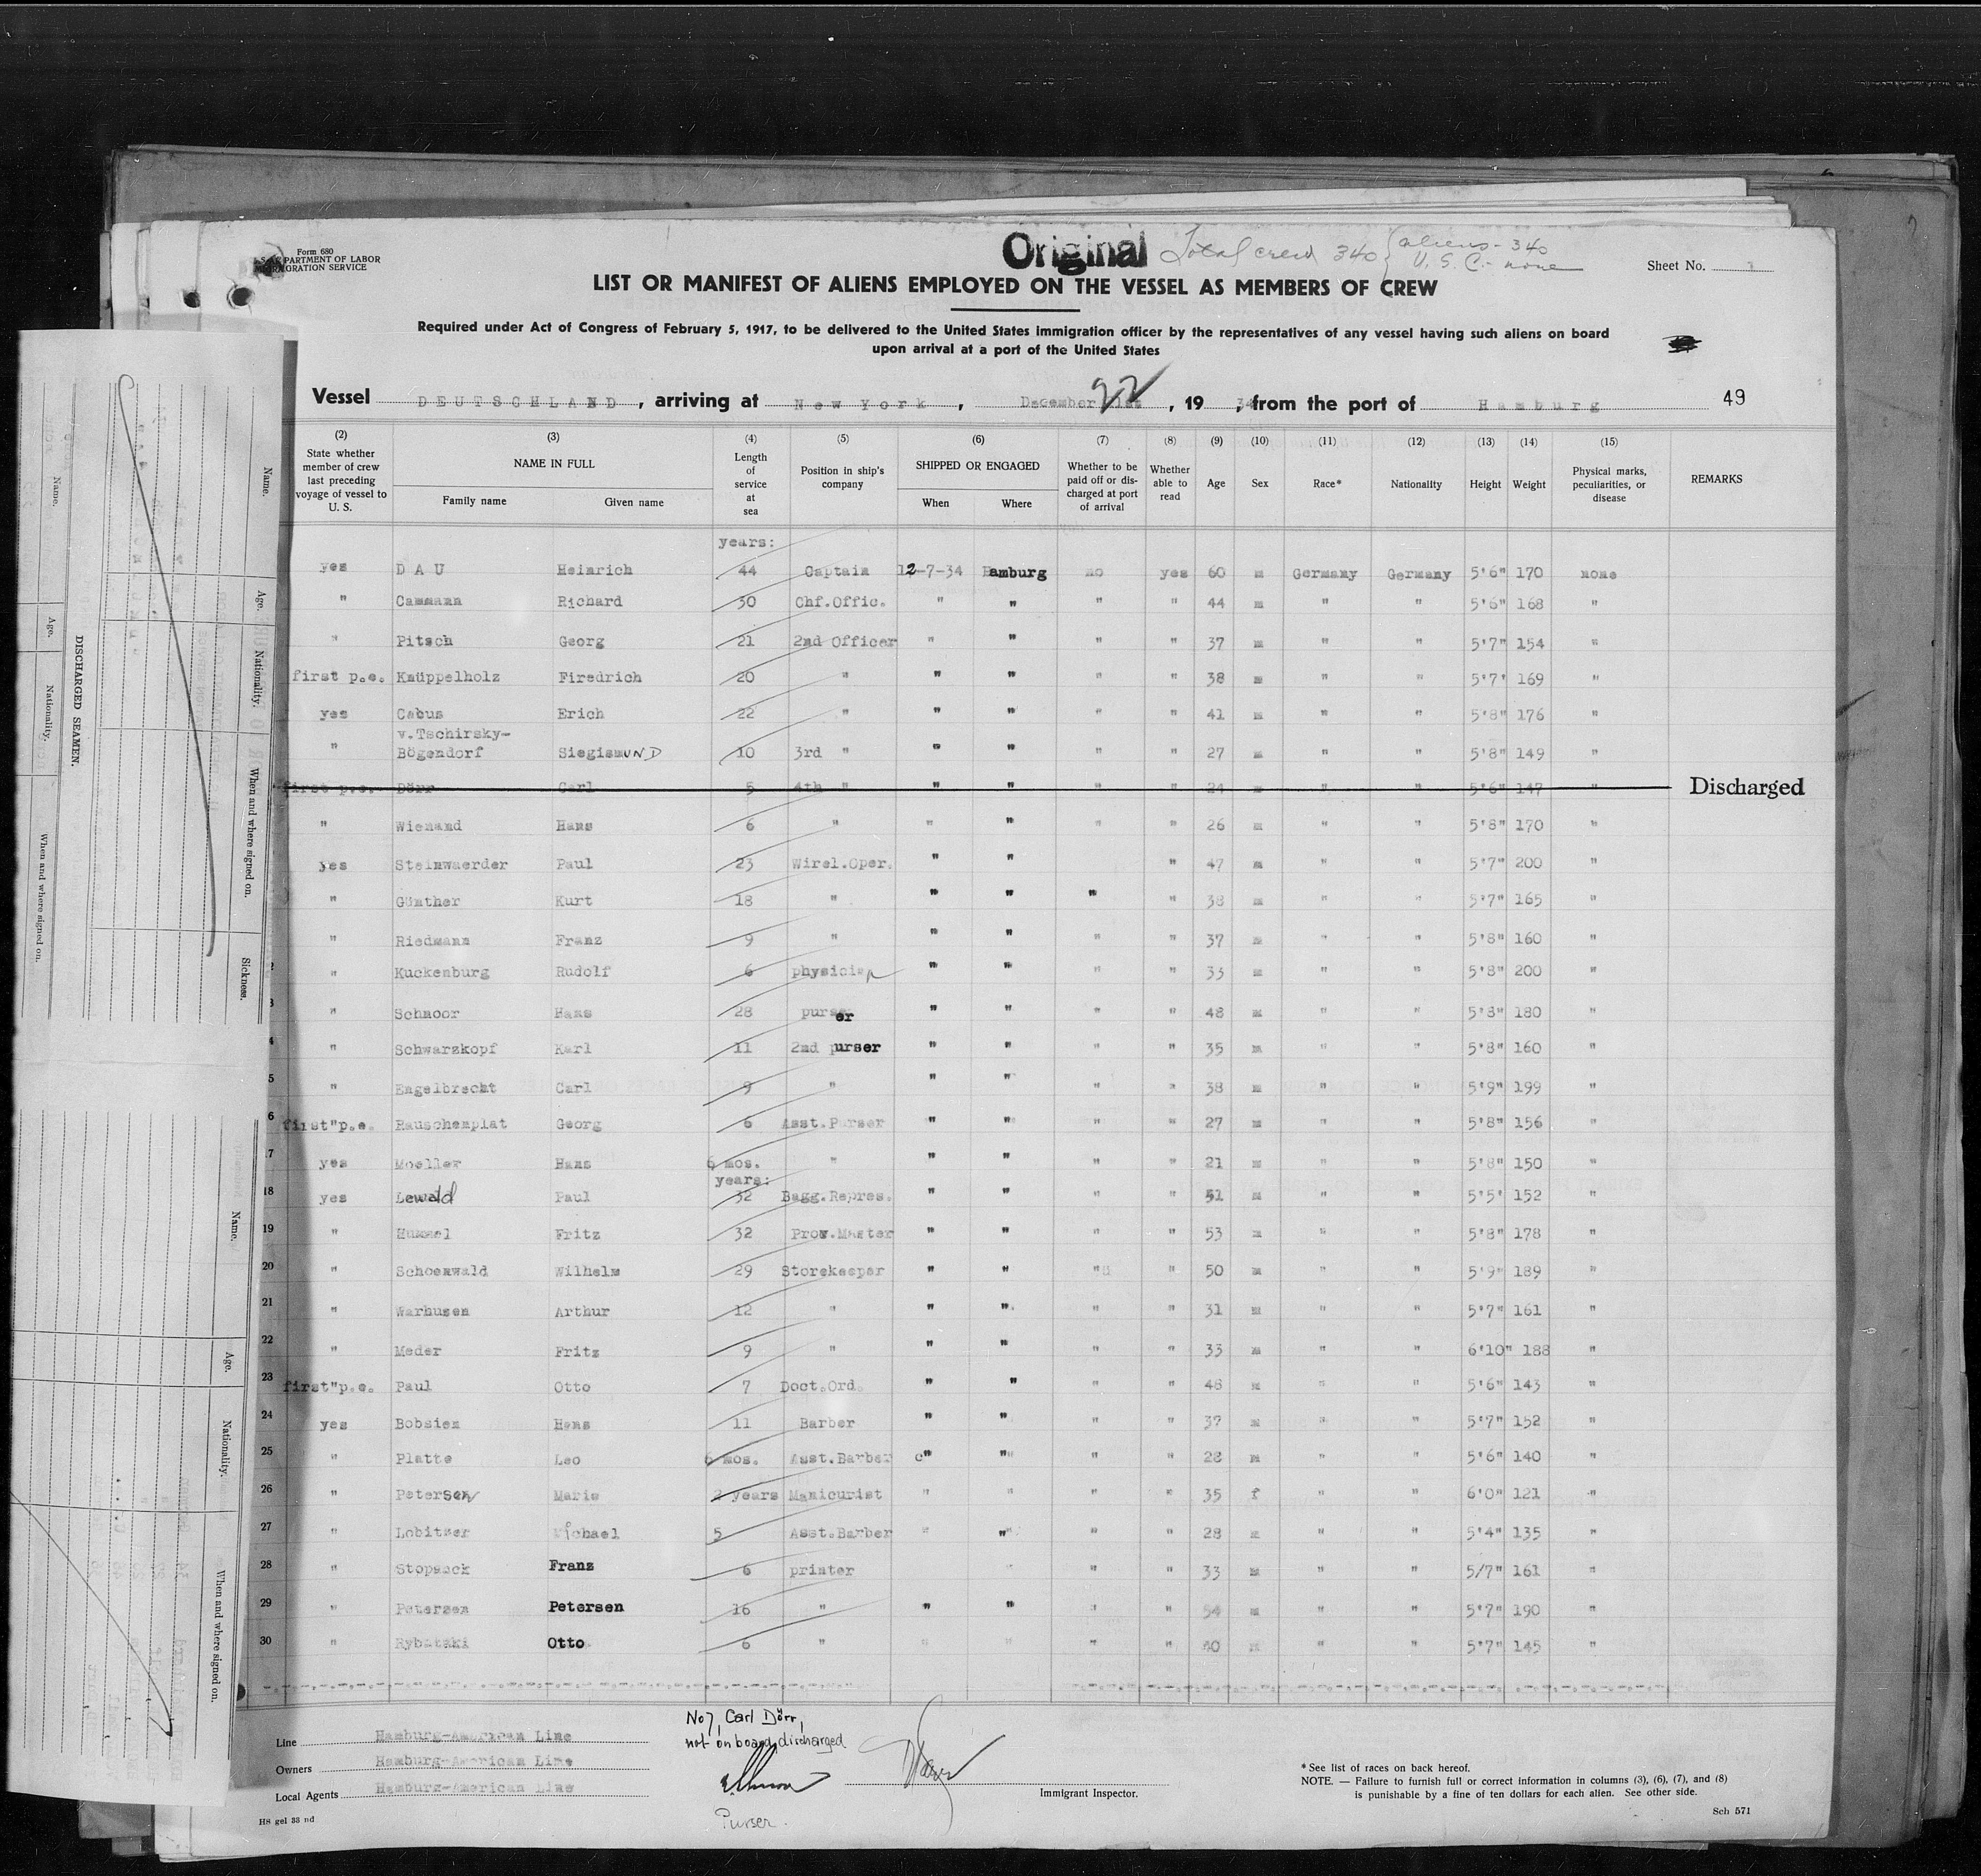 Form 680
U.S. DEPARTMENT OF LABOR
IMMIGRATION SERVICE
Original Total crew 340 { aliens - 340
U. S. C. - none
Sheet No. 1
LIST OR MANIFEST OF ALIENS EMPLOYED ON THE VESSEL AS MEMBERS OF CREW
Required under Act of Congress of February 5, 1917, to be delivered to the United States immigration officer by the representatives of any vessel having such aliens on board
upon arrival at a port of the United States
Vessel DEUTSCHLAND, arriving at New York, December 22, 1934, from the port of Hamburg 49
(2) (3) (4) (5) (6) (7) (8) (9) (10) (11) (12) (13) (14) (15)
State whether member of crew last preceding voyage of vessel to U. S. NAME IN FULL Family name Given name Length of service at sea Position in ship's company SHIPPED OR ENGAGED When Where Whether to be paid off or discharged at port of arrival Whether able to read Age Sex Race* Nationality Height Weight Physical marks, peculiarities, or disease REMARKS
years:
yes D A U Heinrich 44 Captain 12-7-34 Hamburg no yes 60 m Germany Germany 5'6" 170 none
" Cammann Richard 30 Chf.Offic. " " " " 44 m " " 5'6" 168 "
" Pitsch Georg 21 2nd Officer " " " " 37 m " " 5'7" 154 "
first p.e. Knüppelholz Firedrich 20 " " " " " 38 m " " 5'7' 169 "
yes Cabus Erich 22 " " " " " 41 m " " 5'8" 176 "
v.Tschirsky-
" Bögendorf SiegismUND 10 3rd " " " " " 27 m " " 5'8" 149 "
first p.e. Dörr Carl 5 4th " " " " " 24 m " " 5'6" 147 " Discharged
" Wienand Hans 6 " " " " " 26 m " " 5'8" 170 "
yes Steinwaerder Paul 23 Wirel.Oper. " " " 47 m " " 5'7" 200 "
" Günther Kurt 18 " " " " " 38 m " " 5'7" 165 "
" Riedmann Franz 9 " " " " " 37 m " " 5'8" 160 "
2 " Kuckenburg Rudolf 6 physician " " " " 33 m " " 5'8" 200 "
3 " Schnoor Hans 28 purser " " " " 48 m " " 5'8" 180 "
4 " Schwarzkopf Karl 11 2nd purser " " " " 35 m " " 5'8" 160 "
5 " Engelbrecht Carl 9 " " " " " 38 m " " 5'9" 199 "
6 first"p.e. Rauschenplat Georg 6 Asst.Purser " " " " 27 m " " 5'8" 156 "
7 yes Moeller Hans 6 mos. " " " " " 21 m " " 5'8" 150 "
years:
18 yes Lewald Paul 32 Bagg.Repres. " " " " 51 m " " 5'5' 152 "
19 " Hummel Fritz 32 Prov.Master " " " " 53 m " " 5'8" 178 "
20 " Schoenwald Wilhelm 29 Storekeeper " " " " 50 m " " 5'9" 189 "
21 " Warhusen Arthur 12 " " " " " 31 m " " 5'7" 161 "
22 " Meder Fritz 9 " " " " " 33 m " " 6'10" 188 "
23 first"p.e. Paul Otto 7 Doct.Ord. " " " " 48 m " " 5'6" 143 "
24 yes Bobsien Hans 11 Barber " " " " 37 m " " 5'7" 152 "
25 " Platte Leo 6 mos. Asst.Barber " " " " 28 m " " 5'6" 140 "
26 " Petersen Marie 2 years Manicurist " " " " 35 f " " 6'0" 121 "
27 " Lobitzer Michael 5 Asst.Barber " " " " 28 m " " 5'4" 135 "
28 " Stopsack Franz 6 printer " " " 33 m " " 5/7" 161 "
29 " Petersen Petersen 16 " " " " " 54 m " " 5'7" 190 "
30 " Rybatzki Otto 6 " " " " " 40 m " " 5'7" 145 "
No 7, Carl Dörr,
not on board, discharged
Line Hamburg-American Line
Owners Hamburg-American Line
Local Agents Hamburg-American Line
Purser.
Immigrant Inspector.
* See list of races on back hereof.
NOTE. — Failure to furnish full or correct information in columns (3), (6), (7), and (8)
is punishable by a fine of ten dollars for each alien. See other side.
HS gel 33 nd
Sch 571
DISCHARGED SEAMEN.
Name. Age. Nationality. When and where signed on.
Name. Age. Nationality. When and where signed on. Sickness.
Name. Age. Nationality. When and where signed on.